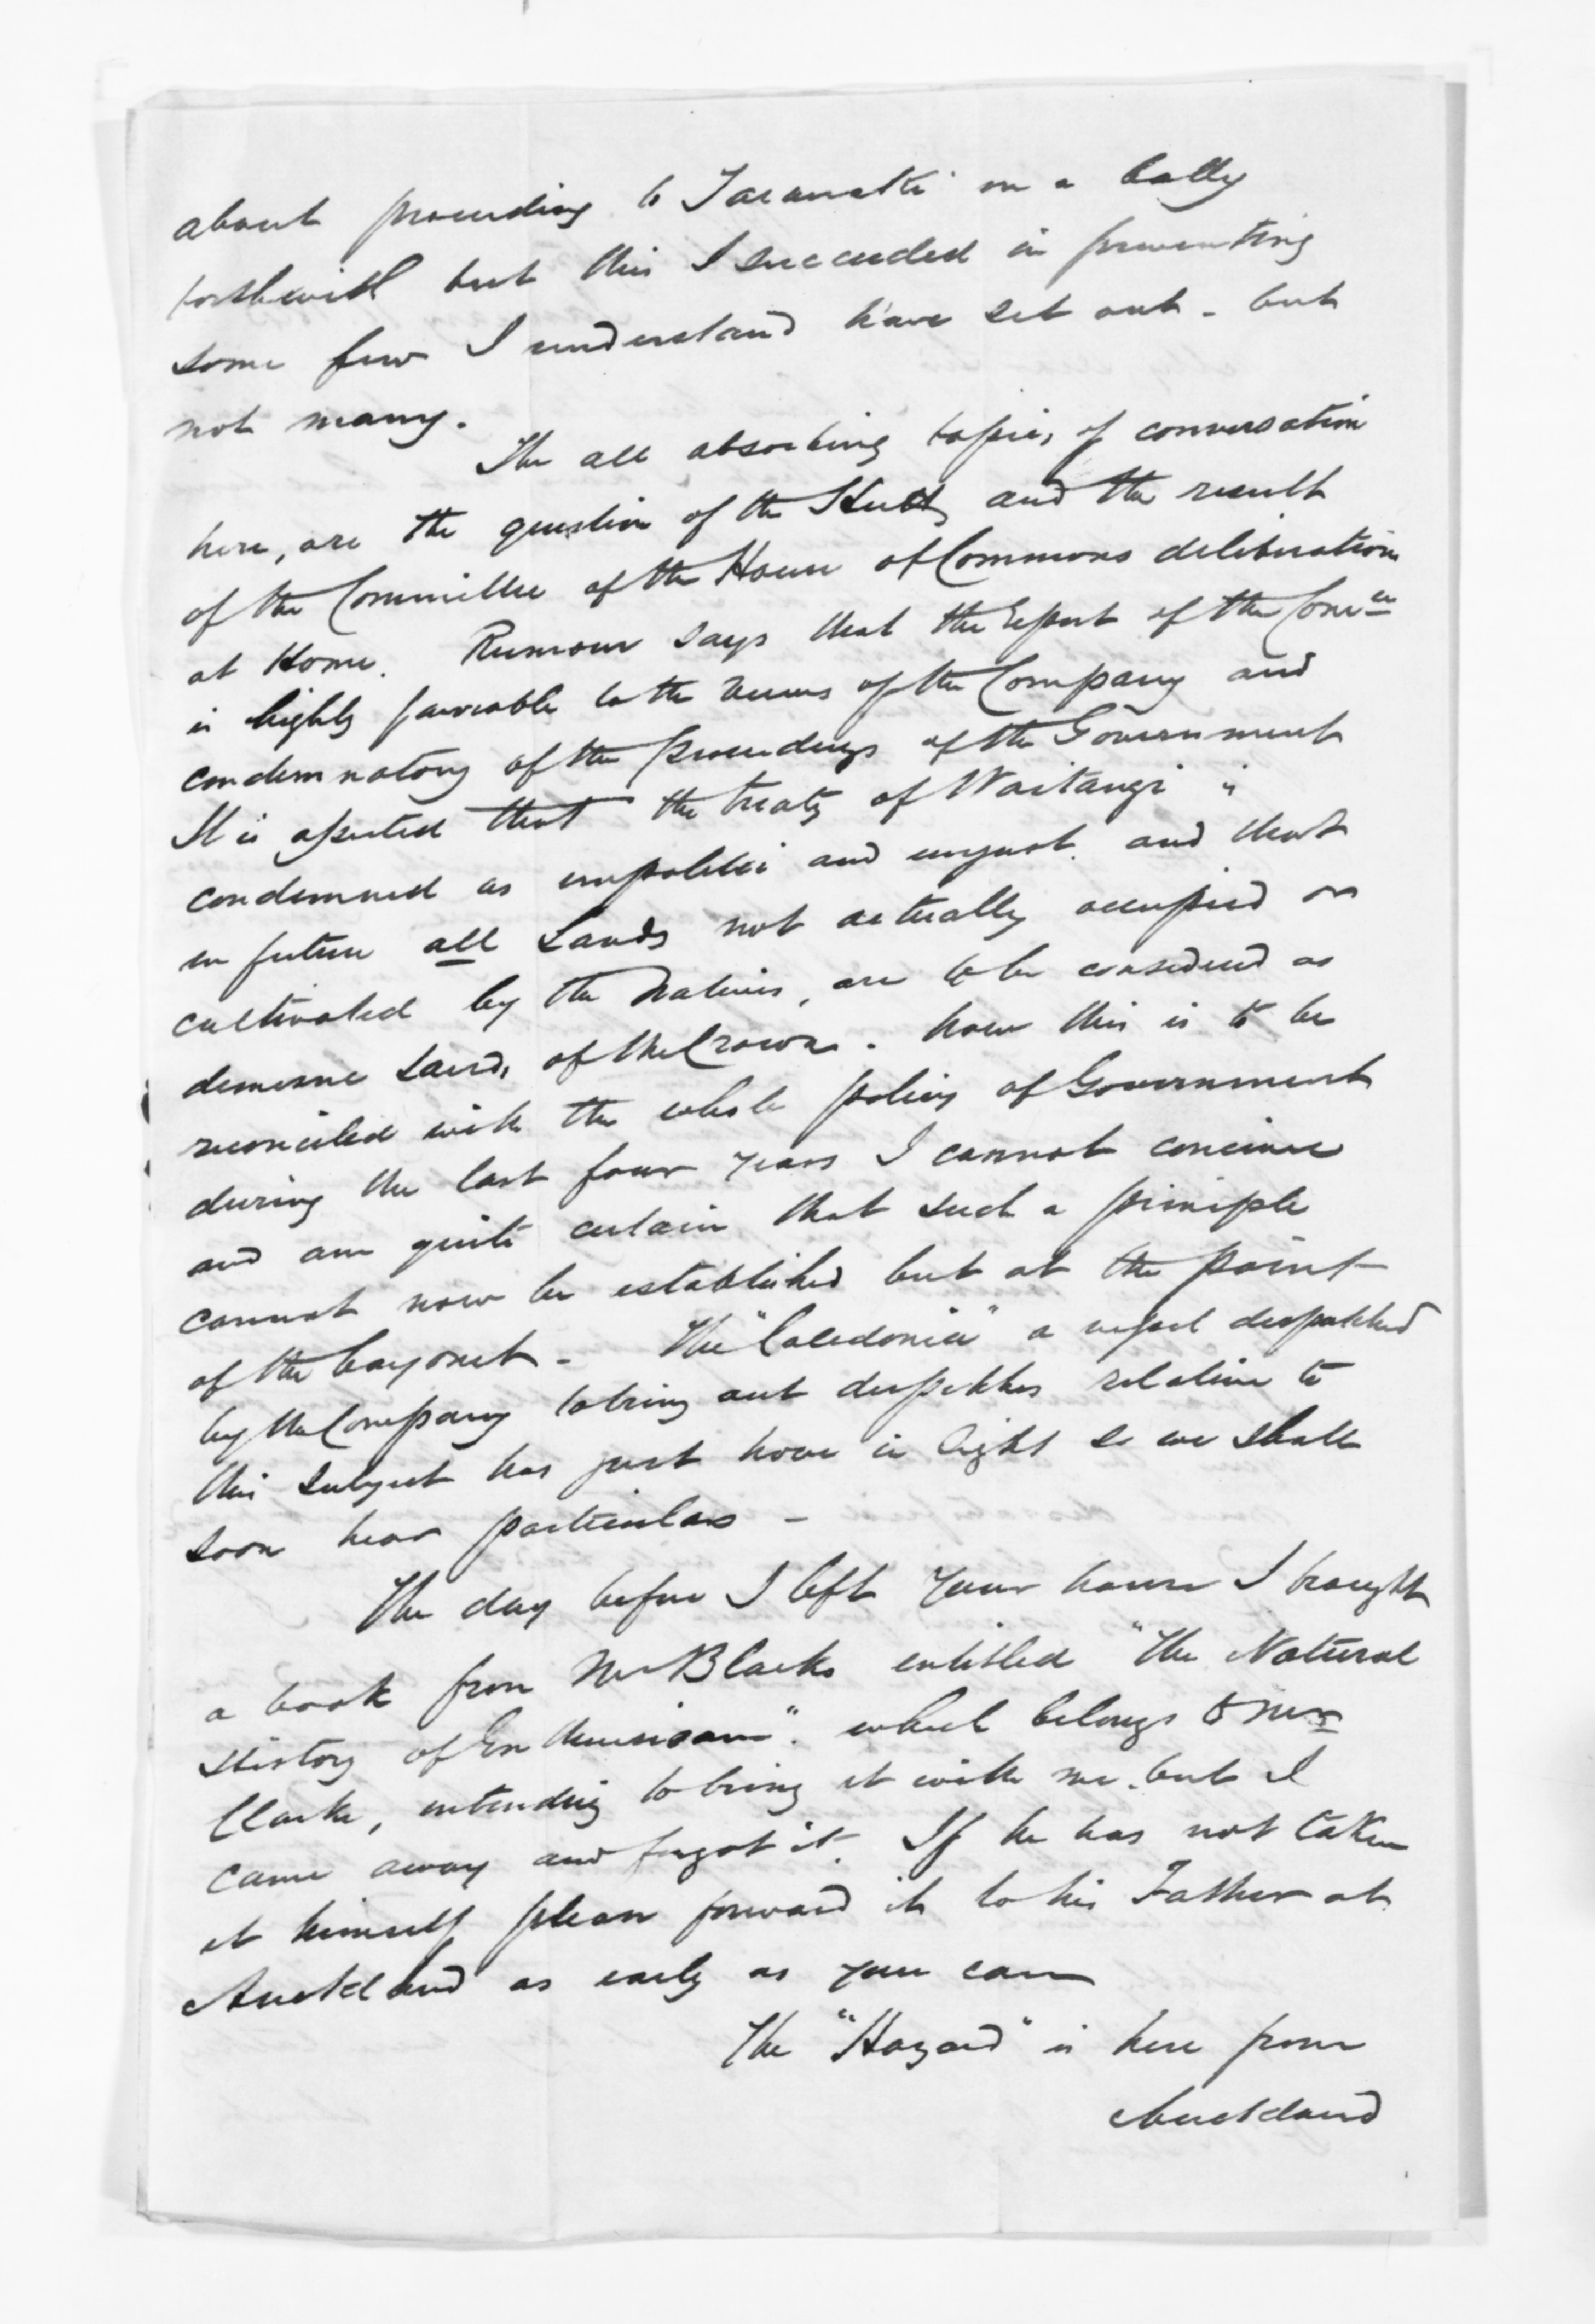 about proceeding to Taranaki in a body
forthwith but this I succeeded in preventing
some few I understand have set out - but
not many.
The all absorbing topics of conversation
here, are the question of the Hutt, and the result
of the Committee of the House of Commons deliberations
at Home. Rumour says that the report of the Comee
is highly favorable to the views of the Company and
condemnatory of the proceedings of the Government
It is asserted that the treaty of Waitangi is
condemned as impolitic and unjust. and that
in future all Lands not actually occupied or
cultivated by the Natives, are to be considered as
demesne Lands of the Crown. how this is to be
reconciled with the whole policy of Government
during the last four years I cannot conceive
and am quite certain that such a principle
cannot now be established but at the point
of the bayonet - The "Caledonia" a vessel despatched
by the Company to bring out despatches relative to
this subject has just hove in sight so we shall
soon hear particulars -
The day before I left your house I brought
a book from Mr Blacks entitled "The Natural
History of Enthusiasm". which belongs to Mr
Clarke, intending to bring it with me. but I
came away and forgot it. If he has not taken
it himself please forward it to his Father at
Auckland as early as you can
The "Hazard" is here from
Auckland